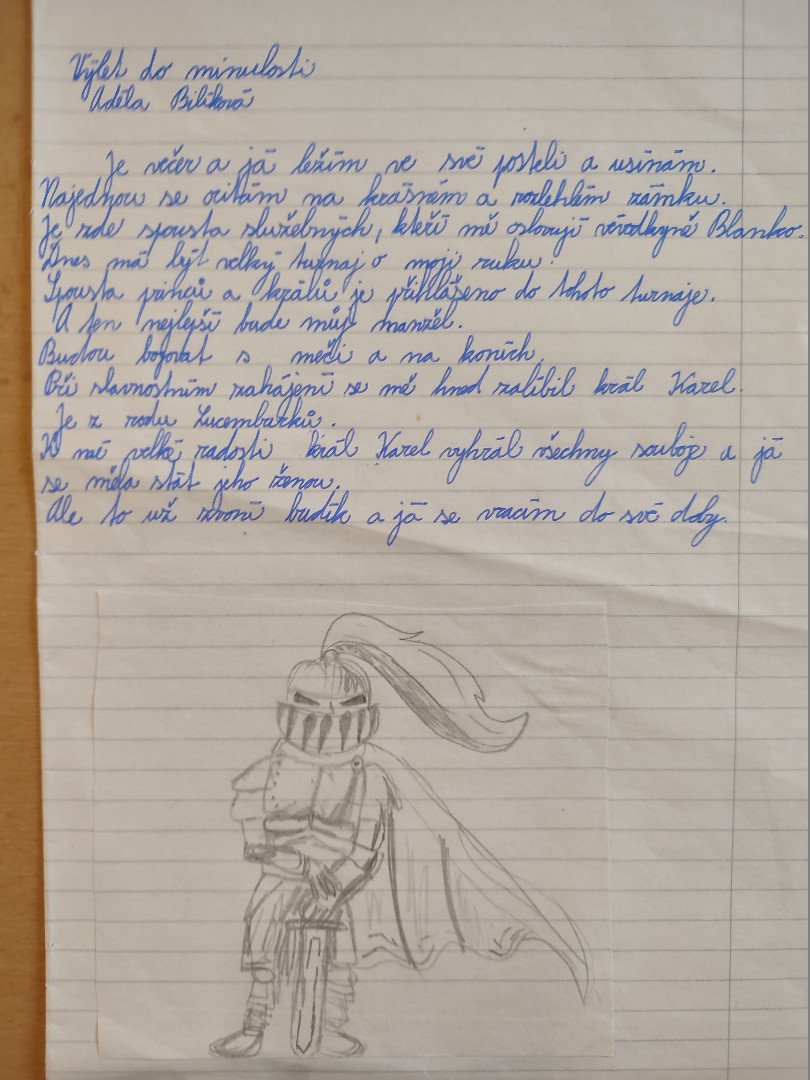 Výlet do minulosti
Adéla Bilíková
Je večer a já ležím ve své posteli a usínám.
Najednou se ocitám na krásném a rozlehlém zámku.
Je zde spousta služebných, kteří mě oslovují vévodkyně Blanko.
Dnes má být velký turnaj o moji ruku.
Spousta princů a králů je přihlášeno do tohoto turnaje.
A ten nejlepší bude můj manžel.
Budou bojovat s meči a na koních.
Při slavnostním zahájení se mě hned zalíbil král Karel.
Je z rodu Lucemburků.
K mé velké radosti král Karel vyhrál všechny souboje a já
se měla stát jeho ženou.
Ale to už zvoní budík a já se vracím do své doby.